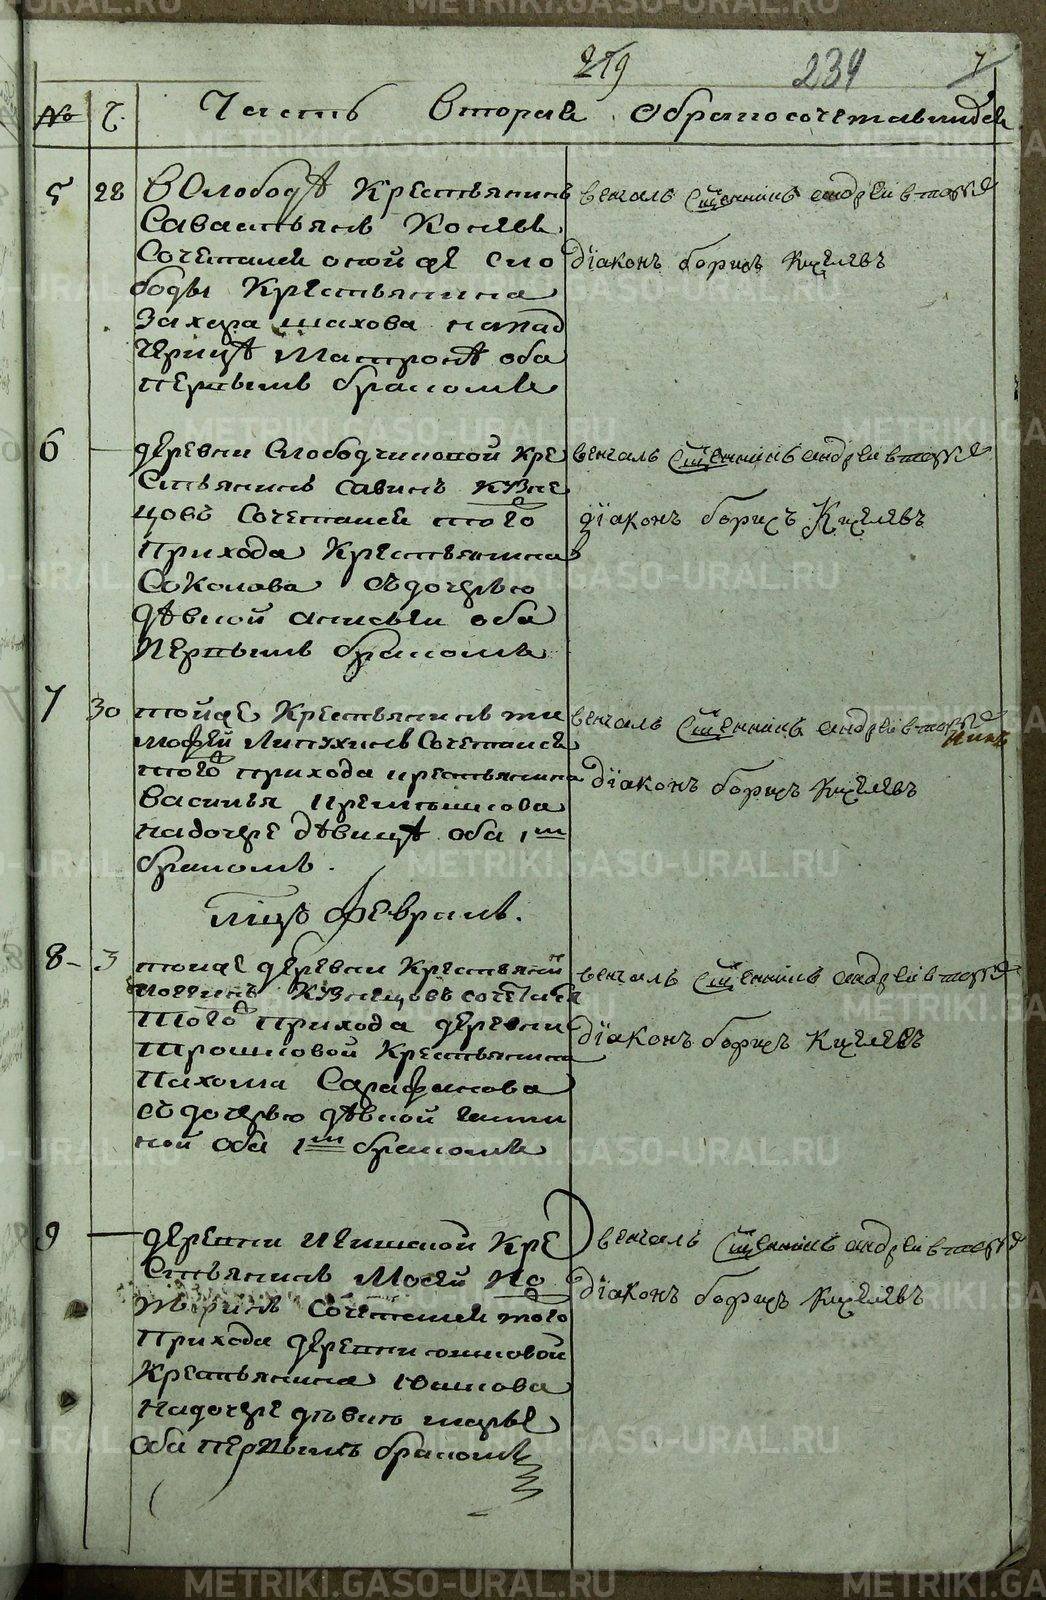 219 234 7
№ Ч. Часть Вторая Обракосочетавшихся
5 28 В Слободѣ Крестьянинъ
Савастьянъ Коневъ
Сочетался оной же Сло
боды Крестьянина
Захара шахова напад
черицѣ Матронѣ оба
первымъ бракомъ
венчалъ Сщенникъ андрей
дїаконъ борисъ Киселевъ
6 — деревни Слободчиковой Кре
Стьянинъ савинъ Кузне
цовъ Сочетался того
прихода Крестьянина
Соколова съдочерью
дѣвкой анисьей оба
первымъ бракомъ
венчалъ Сщенникъ андрей
дїаконъ борисъ Киселевъ
7 30 тойже Крестьянинъ ти
мофей Липухинъ Сочетался
того прихода крестьянина
Василья
надочере дѣвицѣ оба 1м
бракомъ.
венчалъ Сщенникъ андрей
дїаконъ борисъ Киселевъ
мцъ февраль.
8 - 3 тойже деревни Крестьянин
Кузнецовъ сочетался
того прихода деревни
Трошковой Крестьянина
Пахома Сарафанова
съдочерью дѣвкой
оба 1м бракомъ
венчалъ Сщенникъ андрей
дїаконъ борисъ Киселевъ
9 — деревни Кре
Стьянинъ Мосей По
Сочетался того
прихода деревни
Крестьянина
надочере девкою марье
оба первымъ бракомъ
венчалъ Сщенникъ андрей
дїаконъ борисъ Киселевъ
METRIKI.GASO-URAL.RU